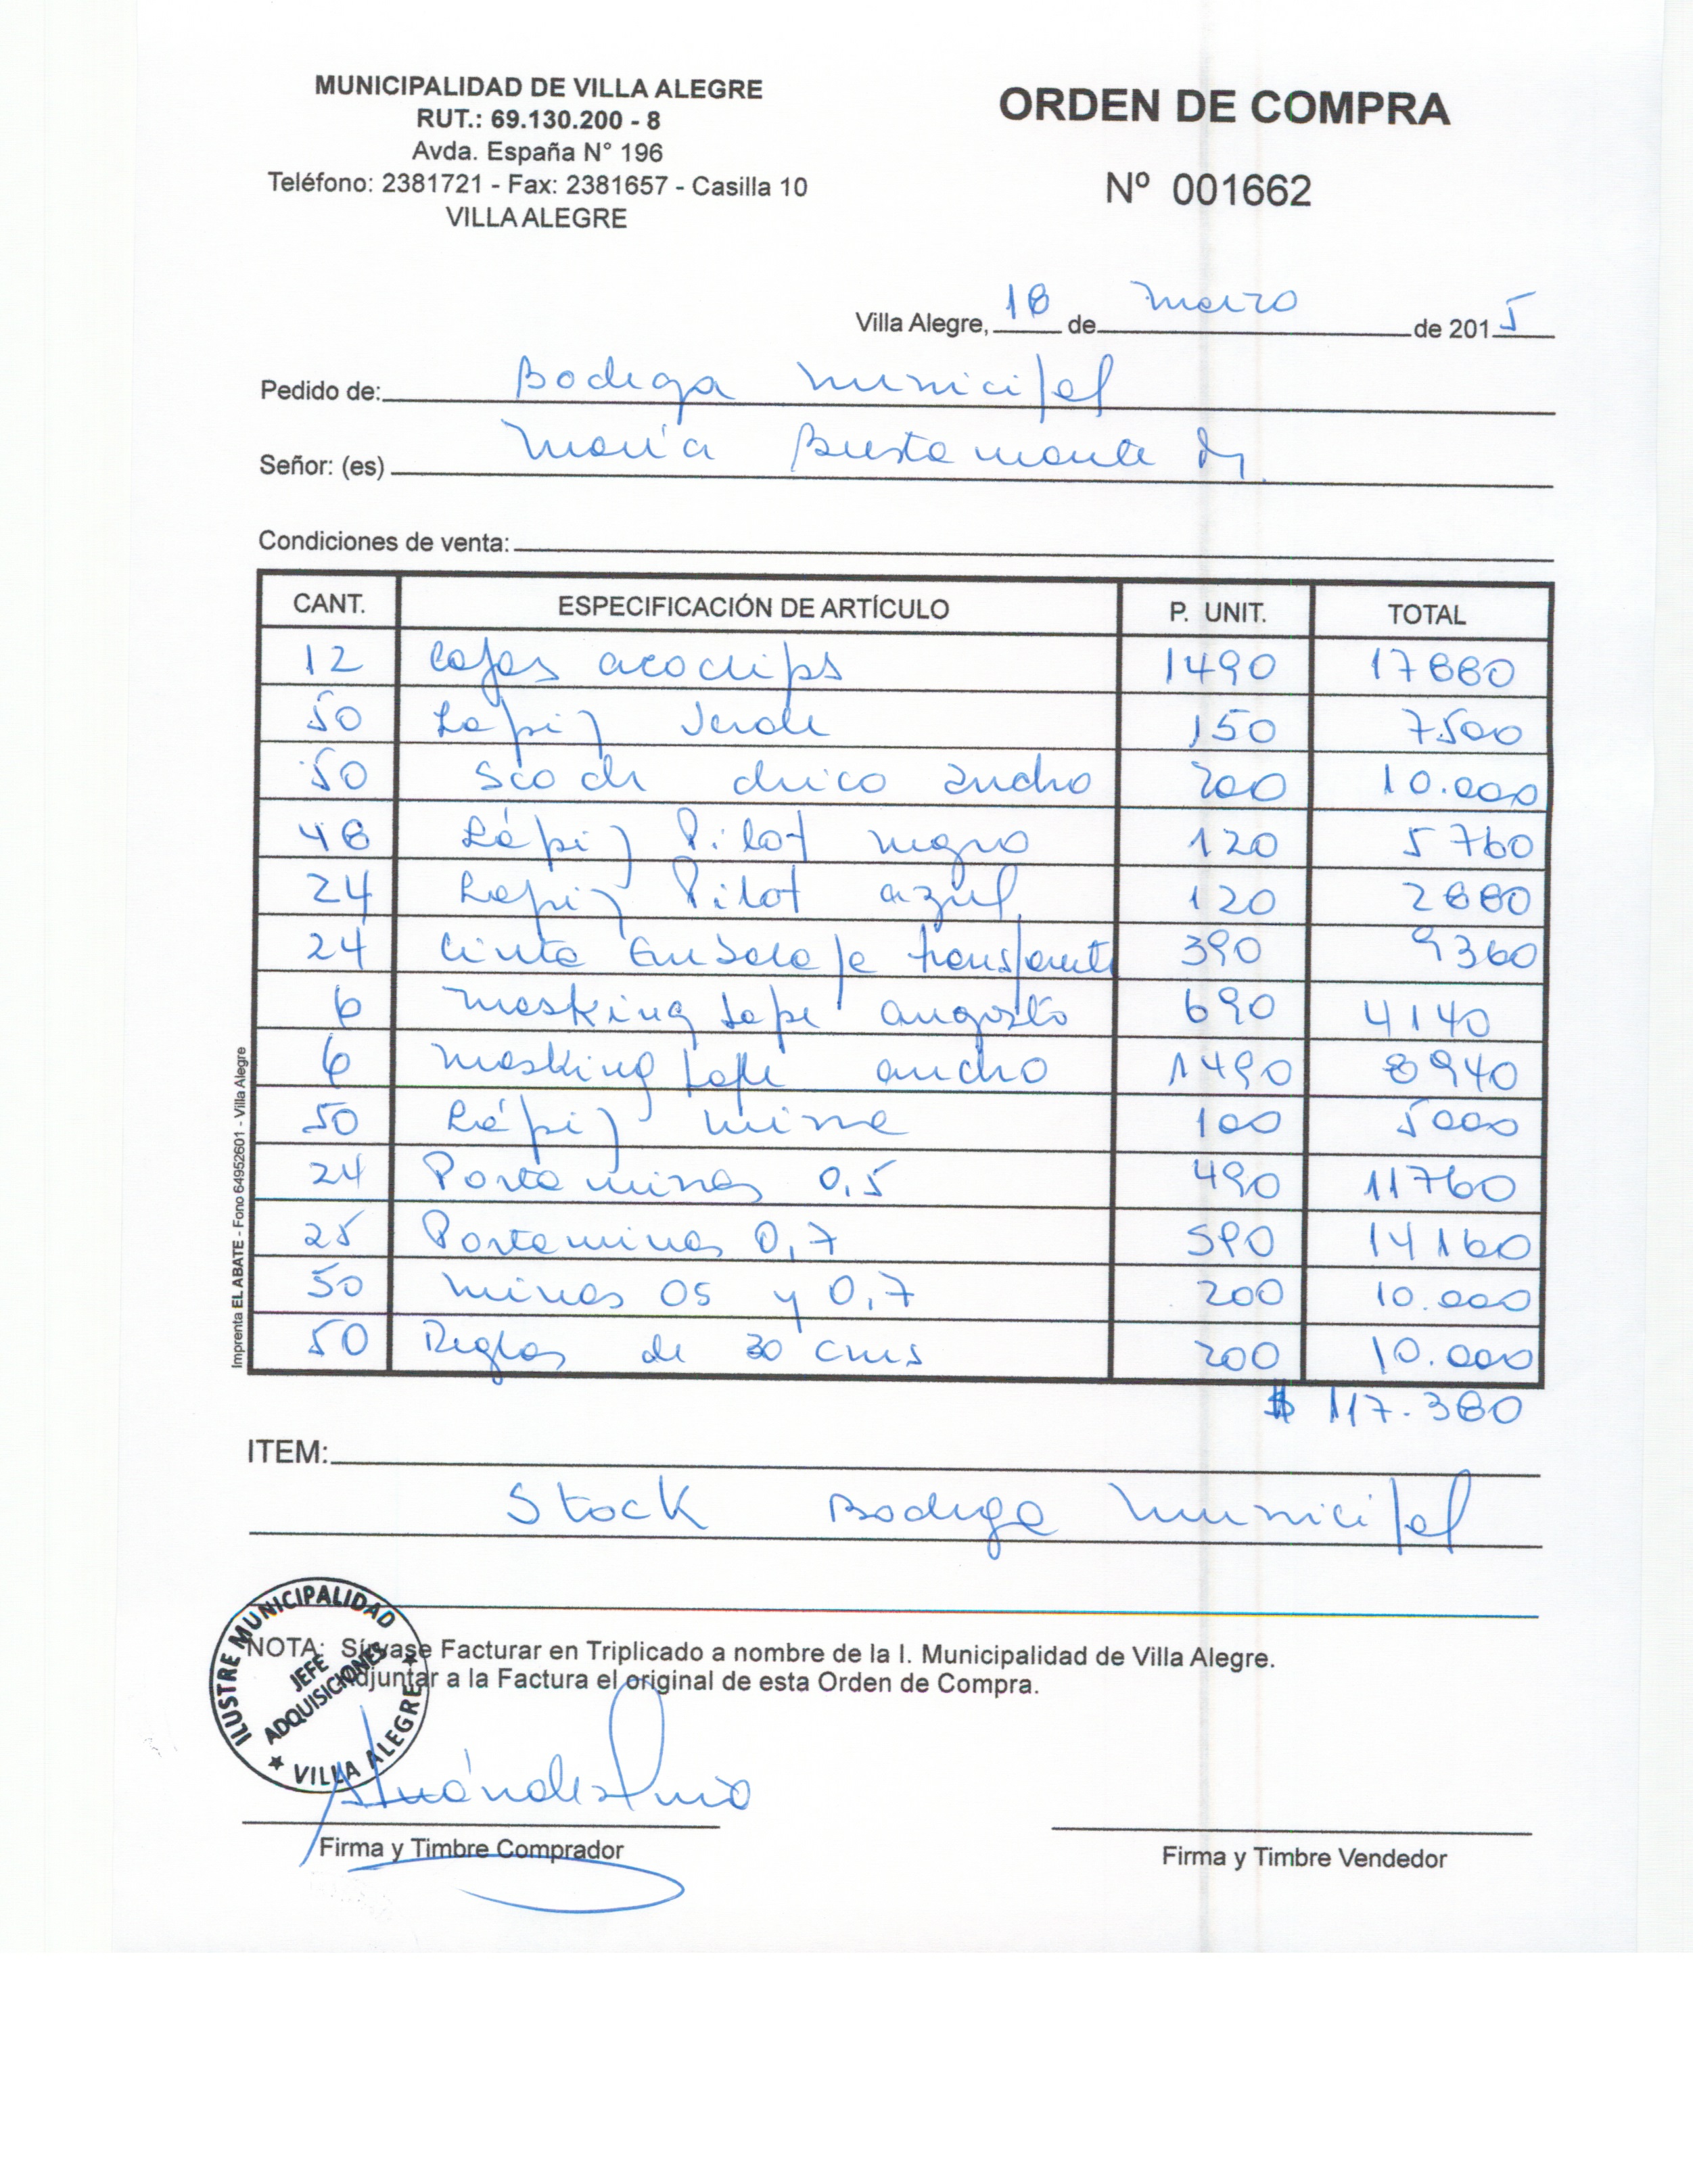 MUNICIPALIDAD DE VILLA ALEGRE
RUT.: 69.130.200 - 8
Avda. España N° 196
Teléfono: 2381721 - Fax: 2381657 - Casilla 10
VILLA ALEGRE
ORDEN DE COMPRA
Nº 001662
Villa Alegre, 18 de marzo de 2015
Pedido de: Bodega municipal
Señor: (es) María Bustamante
Condiciones de venta:
CANT. ESPECIFICACIÓN DE ARTÍCULO P. UNIT. TOTAL
12 Cajas acoclips 1490 17880
50 Lapiz Verde 150 7500
50 Scoch chico ancho 200 10.000
48 Lápiz Pilot negro 120 5760
24 Lapiz Pilot azul 120 2880
24 Cinta Embalaje transparente 390 9360
6 masking tape angosto 690 4140
6 masking tape ancho 1490 8940
50 Lápiz mina 100 5000
24 Porta minas 0,5 490 11760
25 Portaminas 0,7 590 14160
50 minas 05 y 0,7 200 10.000
50 Reglas de 30 cms 200 10.000
$ 117.380
ITEM:
Stock Bodega municipal
NOTA: Sírvase Facturar en Triplicado a nombre de la I. Municipalidad de Villa Alegre.
Adjuntar a la Factura el original de esta Orden de Compra.
ILUSTRE MUNICIPALIDAD
JEFE
ADQUISICIONES
★ VILLA ALEGRE ★
Firma y Timbre Comprador
Firma y Timbre Vendedor
Imprenta EL ABATE - Fono 64952601 - Villa Alegre